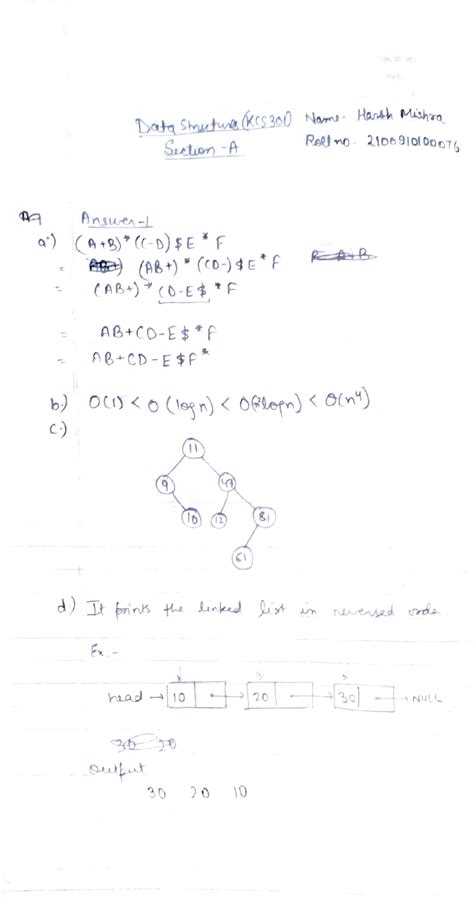 Data Structure (KCS301)
Section -A
Name- Harsh Mishra
Roll no. 2100910100076
Answer-1
a.) (A+B)*(C-D)$E*F
= (AB+)*(CD-)$E*F
= (AB+)*CD-E$*F
= AB+CD-E$*F
= AB+CD-E$F*
b.) O(1) < O(log n) < O(logn) < O(n⁴)
c.)
11
9 47
10 12 81
61
d.) It prints the linked list in reversed orde
Ex.-
head → 10 → 20 → 30 → NULL
30 20
output
30 20 10